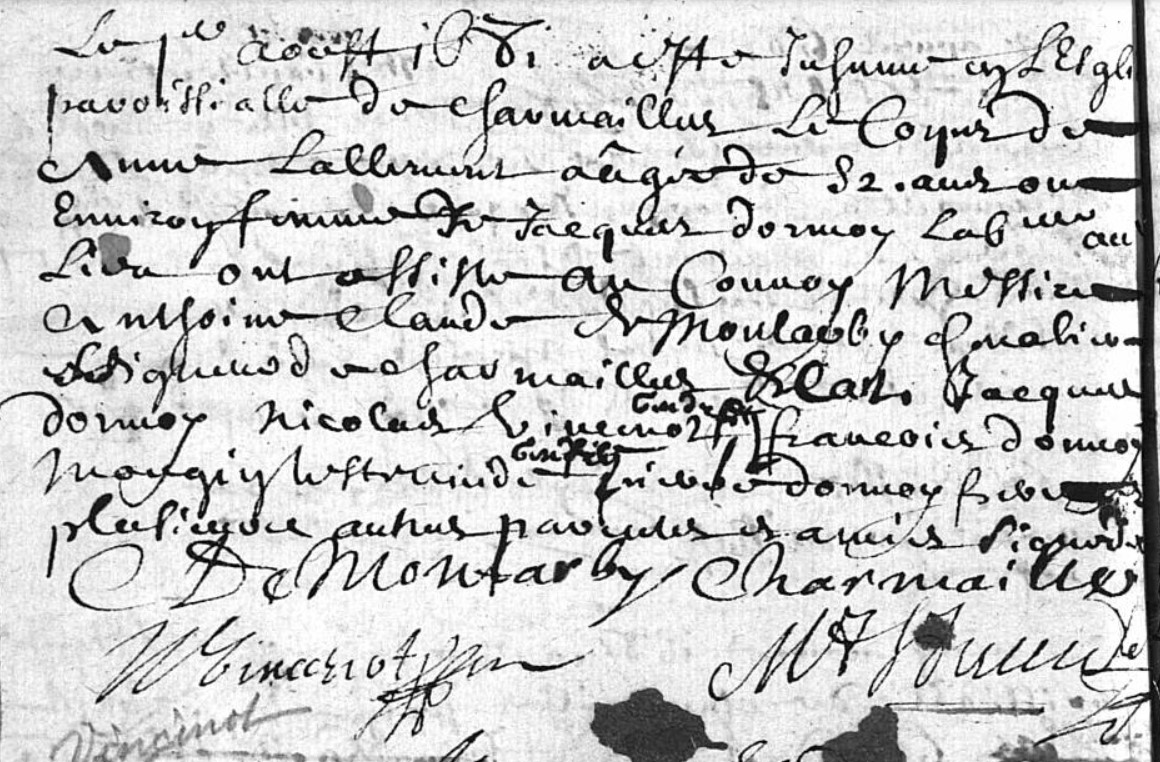 Le 1er aoust 1681 a este Inhume en L'Esgli
paroissialle de Charmailles Le Corps de
Anne Lallement aagée de 52. ans ou
Environ femme de Jacques dormoy Lab
Lieu ont assiste au Convoy Messire
Anthoine Claude de Montarby chevalier
seigneur de charmailles Jacques
dormoy Nicolas Vincenot gendre françois dormoy
Mongin dormoy frere
plusieurs autres parents et amis signe
De Montarby Charmailles
N Vincenot
Vincenot